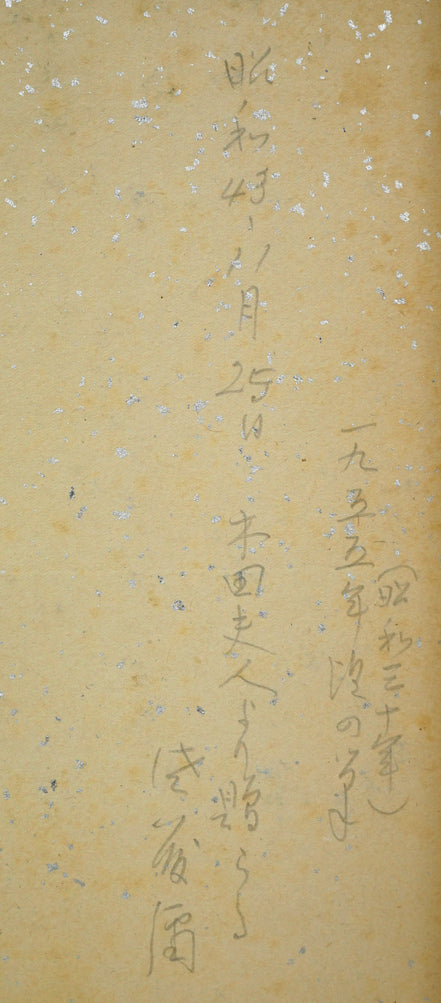 (昭和三十年)
一九五五年頃の筆
昭和43、11月25日 本田夫人より贈らる